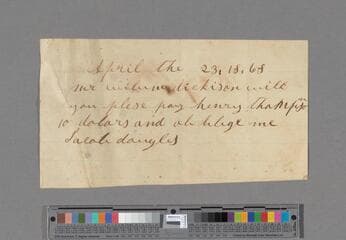 April the 23, 18, 68
mr wilum dickison will
you plese pay henry
10 dolars and oblige me
Jacob douglis